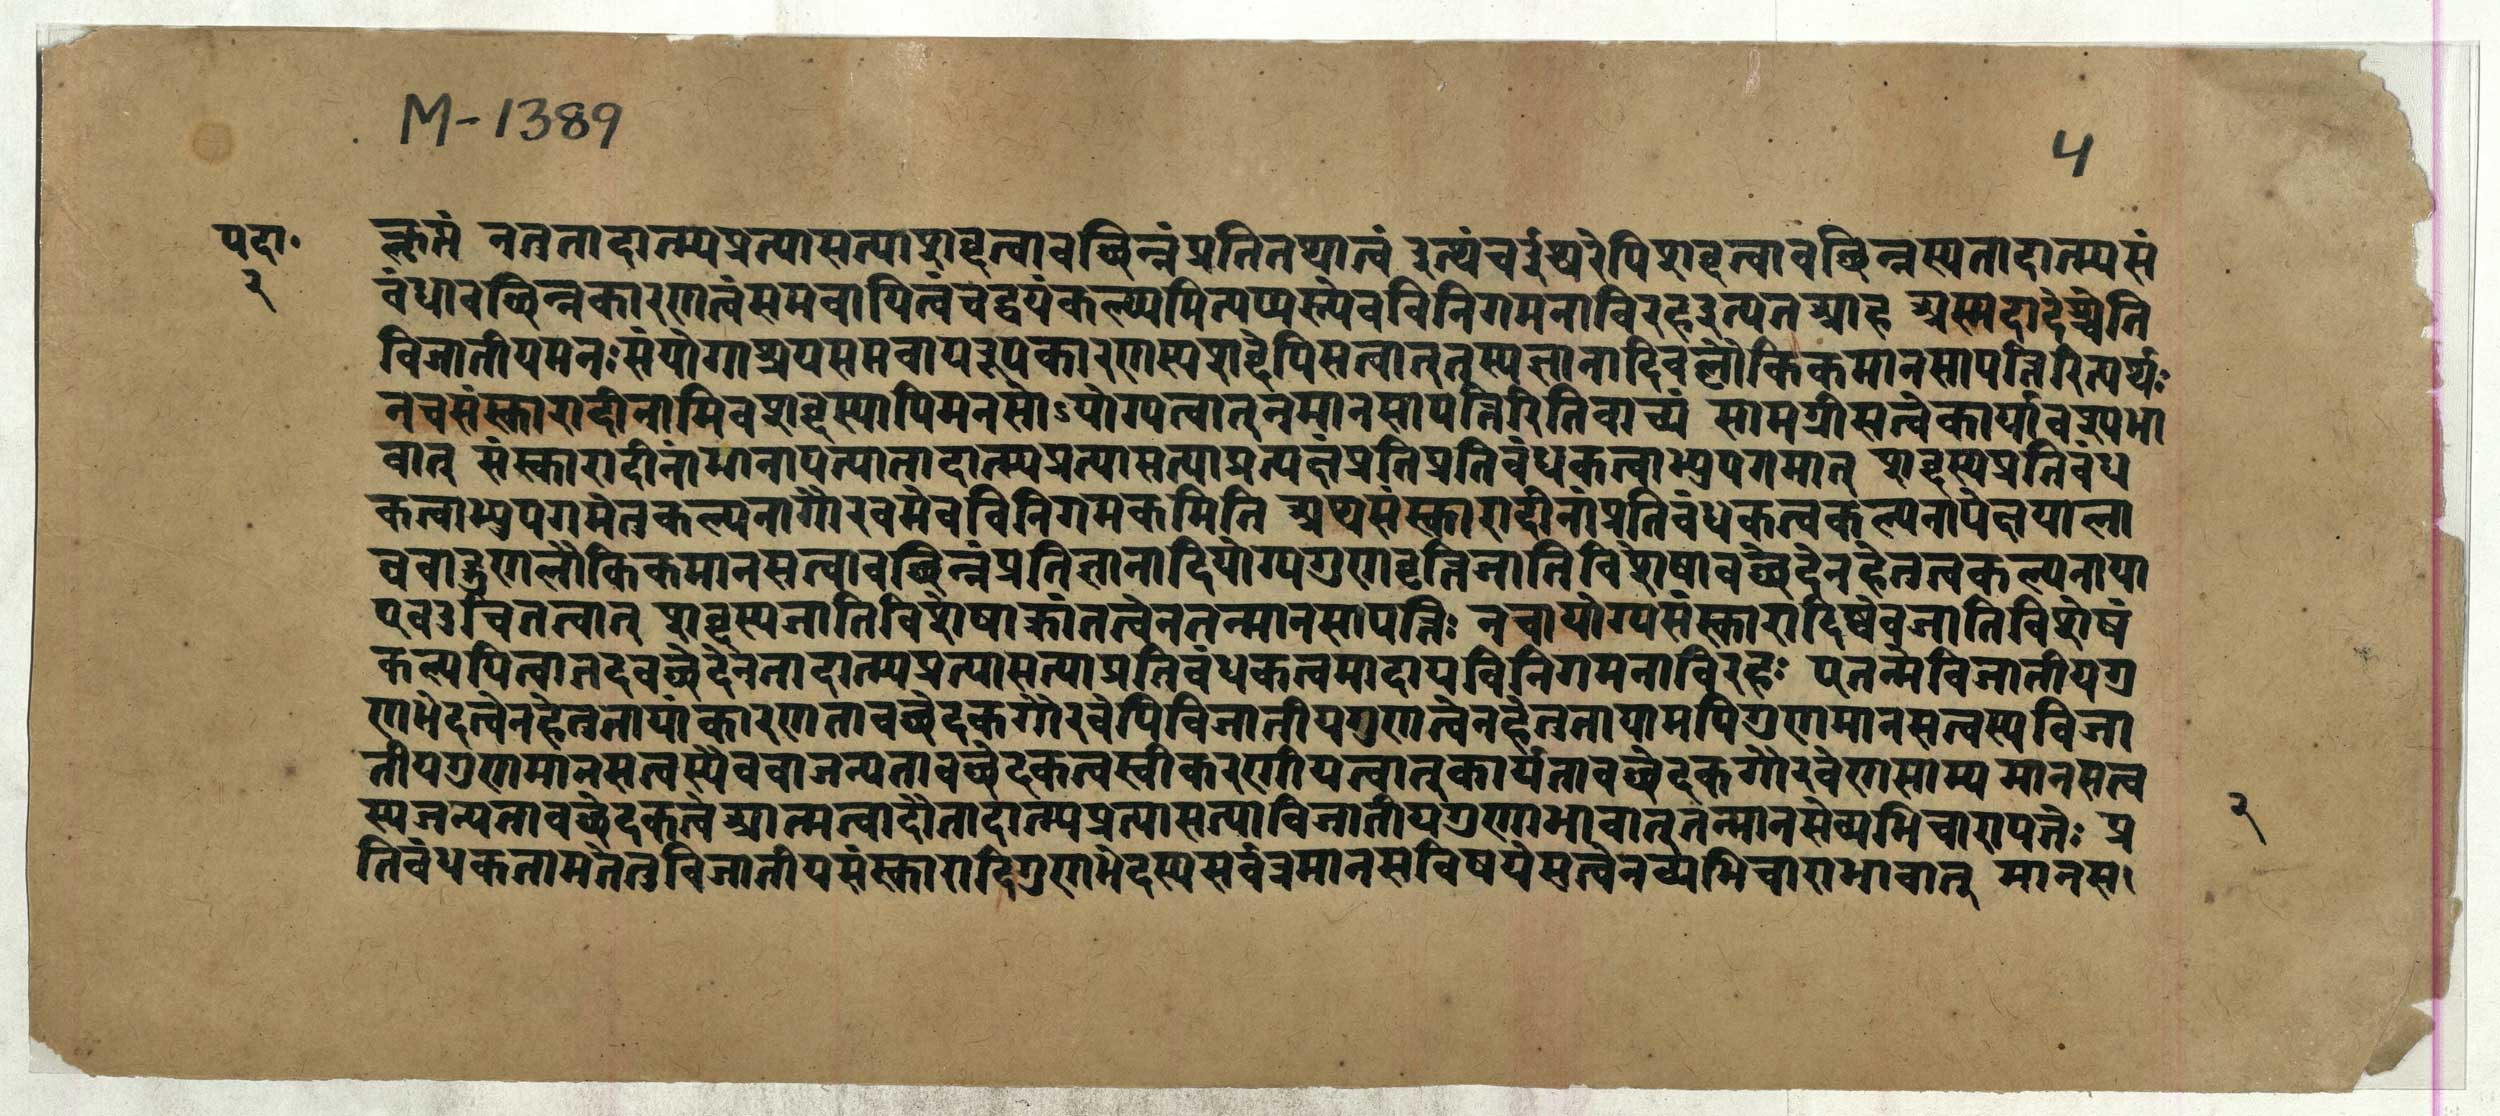 M-1389
५
पदा॰
२
क्लृप्तमं नतुतादात्म्यप्रत्यासत्याशब्दत्वावच्छिन्नंप्रतितथात्वं इत्थंचईश्वरेपिशब्दत्वावच्छिन्नस्यतादात्म्यसं
बंधावच्छिन्नकारणत्वंसमवायित्वंचद्वयंकल्प्यमित्यप्यस्त्येवविनिगमनाविरहइत्यतआह अस्मदादेश्चेति
विजातीयमनःसंयोगाश्रयसमवायरूपकारणस्यशब्देपिसत्वात्तस्यज्ञानादिवल्लौकिकमानसापत्तिरित्यर्थः
नचसंस्कारादीनामिवशब्दस्यापिमनसोऽयोग्यत्वात्नमानसापत्तिरितिवाच्यं सामग्रीसत्वेकार्यावश्यभा
वात् संस्कारादीनांमानापत्यातादात्म्यप्रत्यासत्याप्रत्यक्षंप्रतिप्रतिबंधकत्वाभ्युपगमात् शब्दस्यप्रतिबंध
कत्वाभ्युपगमेतुकल्पनागौरवमेवविनिगमकमिति अथसंस्कारादीनांप्रतिबंधकत्वकल्पनापेक्षयाला
घवाद्गुणलौकिकमानसत्वावच्छिन्नंप्रतिज्ञानादियोग्यगुणवृत्तिजातिविशेषावच्छेदेनहेतुत्वकल्पनाया
एवउचितत्वात् शब्दस्यजातिविशेषाक्रांतत्वेनतन्मानसापत्तिः नचायोग्यसंस्कारादिष्वेवजातिविशेषं
कल्पयित्वातदवच्छेदेनतादात्म्यप्रत्यासत्याप्रतिबंधकत्वमादायविनिगमनाविरहः एतन्मेविजातीयगु
णभेदत्वेनहेतुतायांकारणतावच्छेदकगौरवेपिविजातीयगुणत्वेनहेतुतायामपिगुणमानसत्वस्यविजा
तीयगुणमानसत्वस्यैववाजन्यतावच्छेदकत्वस्वीकरणीयत्वात्कार्यतावच्छेदकगौरवेणसाम्य मानसत्व
स्यजन्यतावच्छेदकत्वेआत्मत्वादौतादात्म्यप्रत्यासत्याविजातीयगुणाभावात्तन्मानसेव्यभिचारापत्तेः प्र
तिबंधकतामतेतुविजातीयसंस्कारादिगुणभेदस्यसर्वत्रमानसविषयेसत्वेनव्यभिचाराभावात् मानस।
२